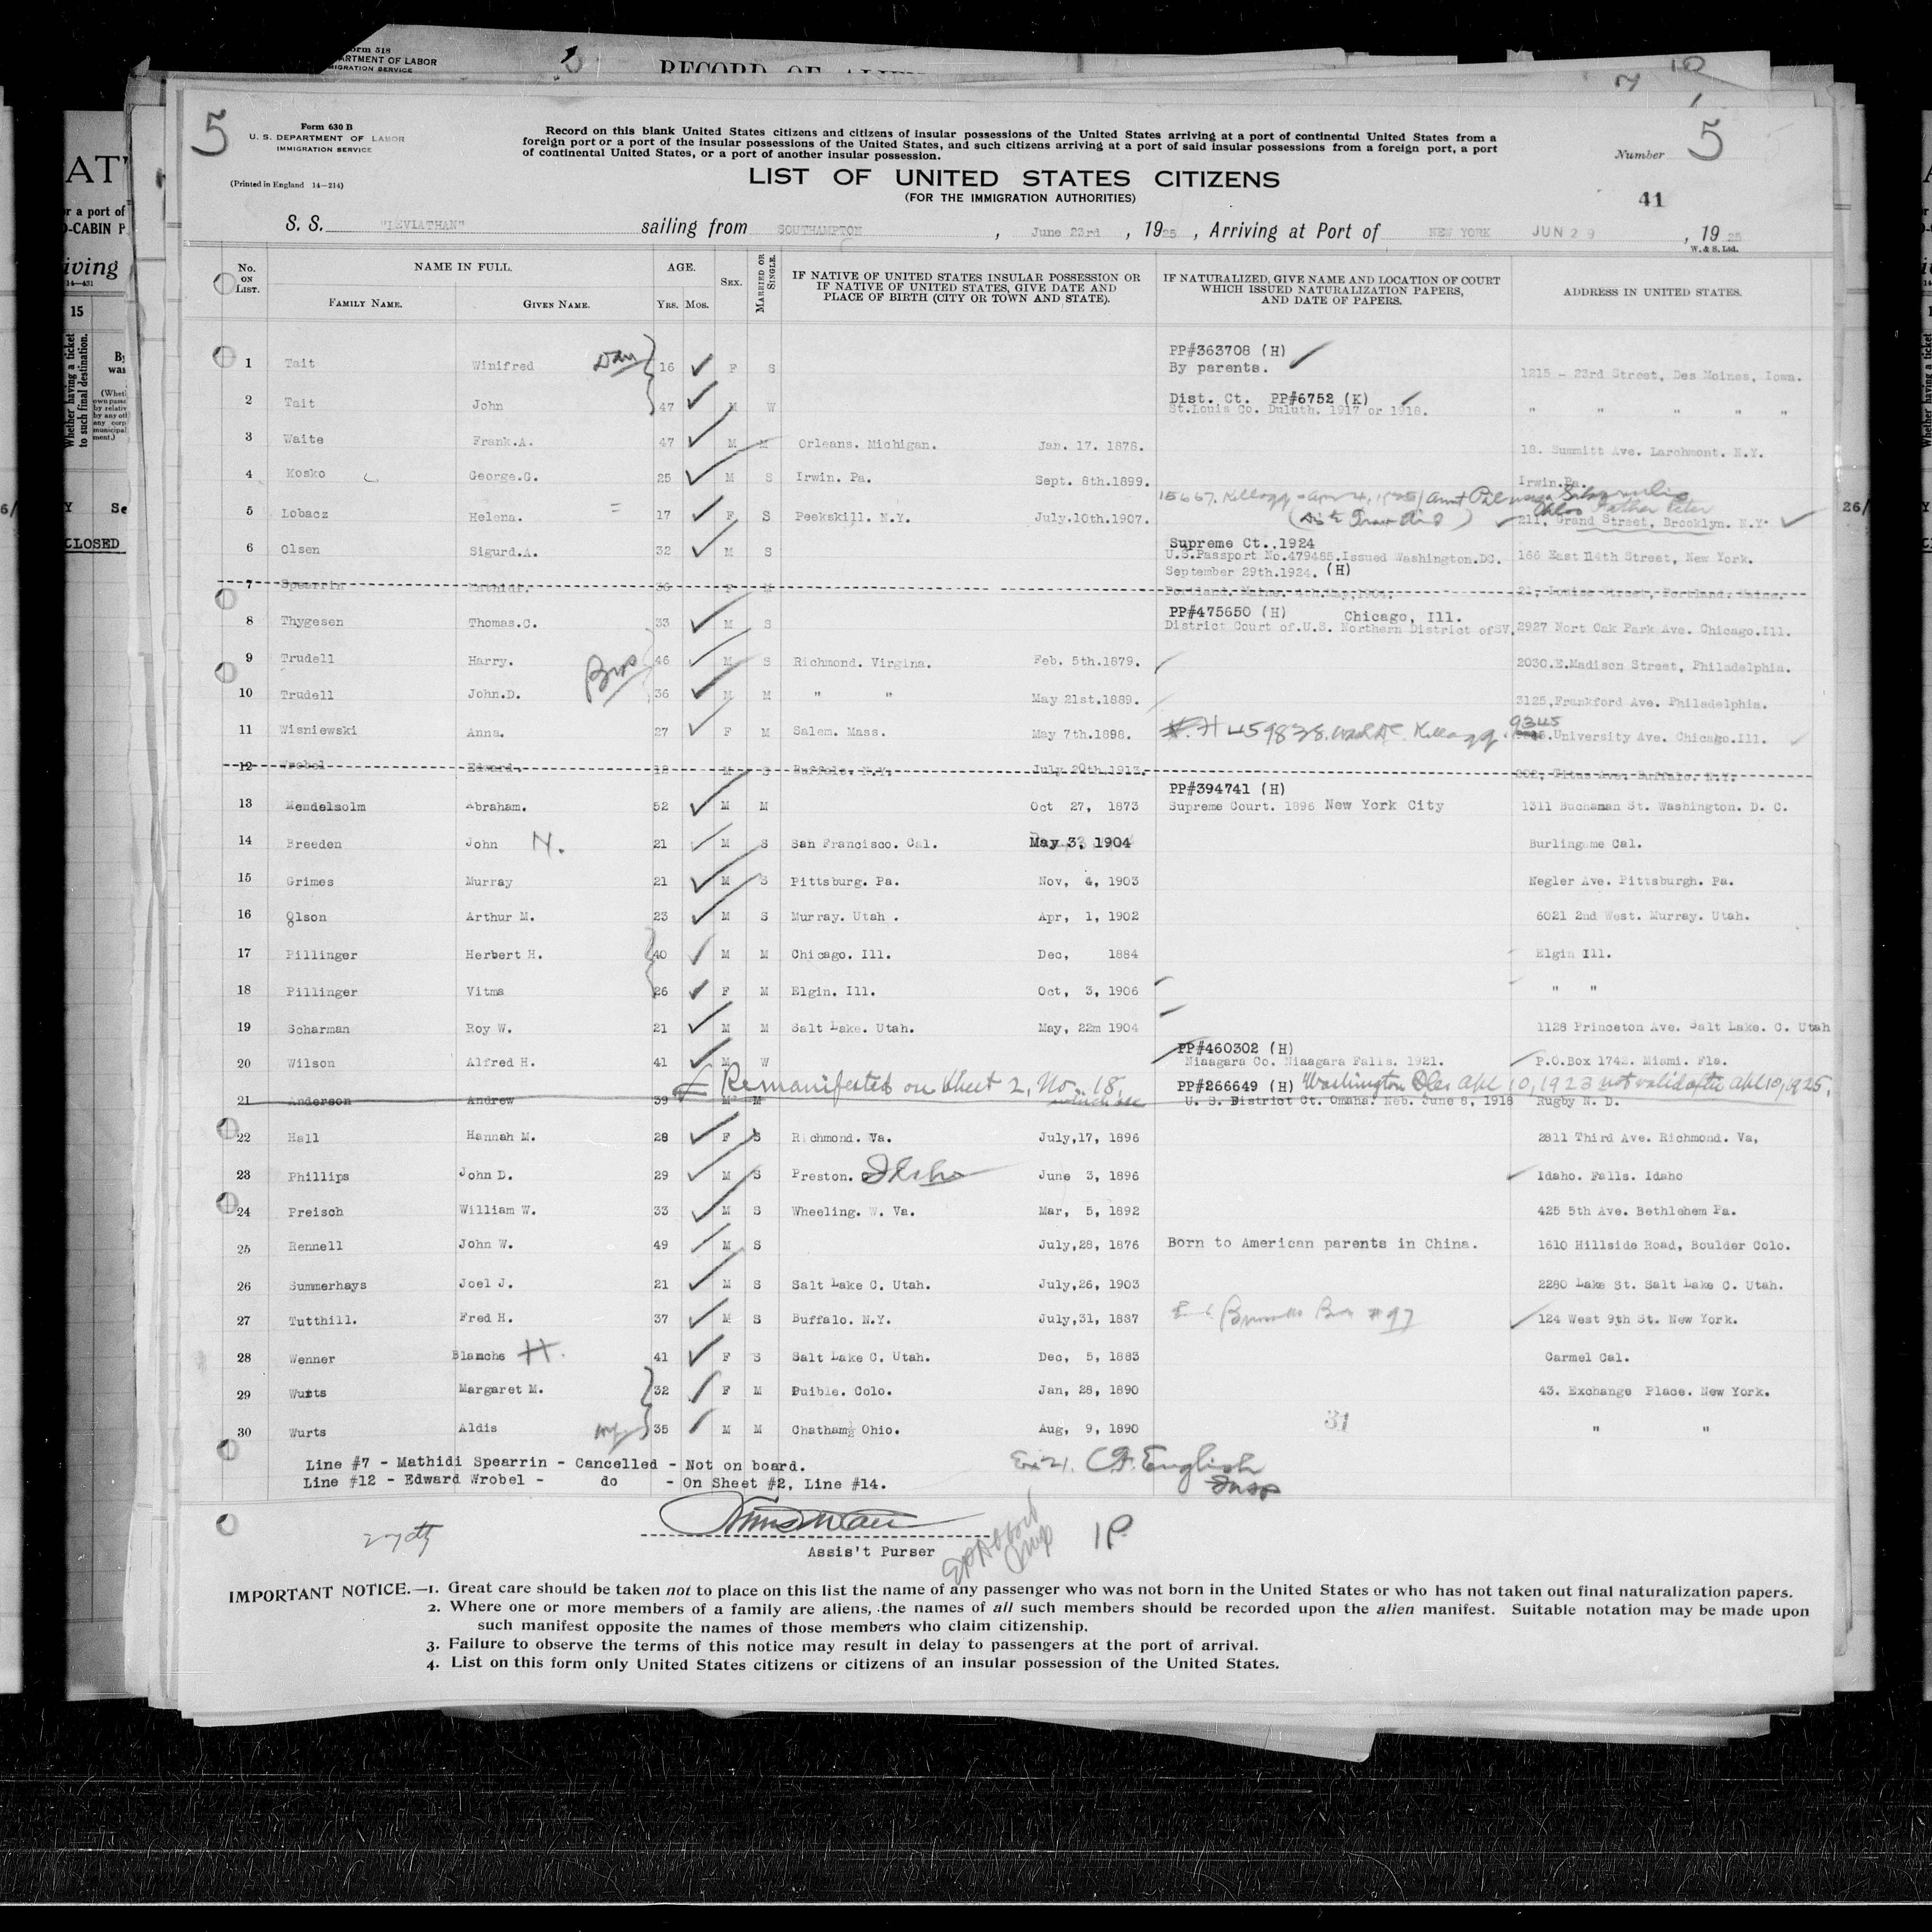 Form 518
DEPARTMENT OF LABOR
IMMIGRATION SERVICE
RECORD OF ALIEN
10
5
Form 630 B
U. S. DEPARTMENT OF LABOR
IMMIGRATION SERVICE
(Printed in England 14—214)
Record on this blank United States citizens and citizens of insular possessions of the United States arriving at a port of continental United States from a
foreign port or a port of the insular possessions of the United States, and such citizens arriving at a port of said insular possessions from a foreign port, a port
of continental United States, or a port of another insular possession.
Number 5
LIST OF UNITED STATES CITIZENS
(FOR THE IMMIGRATION AUTHORITIES)
41
S. S. "LEVIATHAN" sailing from SOUTHAMPTON, June 23rd, 1925, Arriving at Port of NEW YORK JUN 29, 1925
W. & S. Ltd.
No. ON LIST. NAME IN FULL. FAMILY NAME. GIVEN NAME. AGE. YRS. MOS. SEX. MARRIED OR SINGLE. IF NATIVE OF UNITED STATES INSULAR POSSESSION OR IF NATIVE OF UNITED STATES, GIVE DATE AND PLACE OF BIRTH (CITY OR TOWN AND STATE). IF NATURALIZED, GIVE NAME AND LOCATION OF COURT WHICH ISSUED NATURALIZATION PAPERS, AND DATE OF PAPERS. ADDRESS IN UNITED STATES.
1 Tait Winifred Dau 16 F S PP#363708 (H) By parents. 1215 - 23rd Street, Des Moines, Iowa.
2 Tait John 47 M W Dist. Ct. PP#6752 (K) St.Louis Co. Duluth. 1917 or 1918. " " " " "
3 Waite Frank.A. 47 M M Orleans. Michigan. Jan. 17. 1878. 18. Summitt Ave. Larchmont. N.Y.
4 Kosko George.G. 25 M S Irwin. Pa. Sept. 8th.1899. Irwin.Pa.
5 Lobacz Helena. 17 F S Peekskill. N.Y. July.10th.1907. 15667. Kellogg Father Peter 211, Grand Street, Brooklyn. N.Y.
6 Olsen Sigurd.A. 32 M S Supreme Ct.,1924 U.S.Passport No.479485.Issued Washington.DC. September 29th.1924. (H) 166 East 114th Street, New York.
7 Spearrin Mathidi. 36 F M Portland. Maine. 4th.May,1904. 21, Louise Street, Portland. Maine.
8 Thygesen Thomas.C. 33 M S PP#475650 (H) Chicago, Ill. District Court of.U.S. Northern District ofSV. 2927 Nort Oak Park Ave. Chicago.Ill.
9 Trudell Harry. 46 M S Richmond. Virgina. Feb. 5th.1879. 2030.E.Madison Street, Philadelphia.
Bros
10 Trudell John.D. 36 M M " " May 21st.1889. 3125,Frankford Ave. Philadelphia.
11 Wisniewski Anna. 27 F M Salem. Mass. May 7th.1898. #H 459838. Kellogg. 9345 University Ave. Chicago.Ill.
12 Wrobel Edward. 12 M S Buffalo. N.Y. July 20th.1913. 382, Titus Ave. Buffalo. N.Y.
13 Mendelsolm Abraham. 52 M M Oct 27, 1873 PP#394741 (H) Supreme Court. 1896 New York City 1311 Buchaman St. Washington. D. C.
14 Breeden John N. 21 M S San Francisco. Cal. May 3, 1904 Burlingame Cal.
15 Grimes Murray 21 M S Pittsburg. Pa. Nov, 4, 1903 Negler Ave. Pittsburgh. Pa.
16 Olson Arthur M. 23 M S Murray. Utah . Apr, 1, 1902 6021 2nd West. Murray. Utah.
17 Pillinger Herbert H. 40 M M Chicago. Ill. Dec, 1884 Elgin Ill.
18 Pillinger Vitma 26 F M Elgin. Ill. Oct, 3, 1906 " "
19 Scharman Roy W. 21 M M Salt Lake. Utah. May, 22m 1904 1128 Princeton Ave. Salt Lake. C. Utah
20 Wilson Alfred H. 41 M W PP#460302 (H) Niaagara Co. Niaagara Falls. 1921. P.O.Box 1742. Miami. Fla.
Remanifested on Sheet 2, No. 18, which see PP#266649 (H) Washington Apl 10, 1923 not valid after Apl 10, 1925.
21 Anderson Andrew 39 M M U. S. District Ct. Omaha. Neb. June 8, 1918 Rugby N. D.
22 Hall Hannah M. 28 F S Richmond. Va. July,17, 1896 2811 Third Ave. Richmond. Va,
23 Phillips John D. 29 M S Preston. Idaho June 3, 1896 Idaho. Falls. Idaho
24 Preisch William W. 33 M S Wheeling. W. Va. Mar, 5, 1892 425 5th Ave. Bethlehem Pa.
25 Rennell John W. 49 M S July,28, 1876 Born to American parents in China. 1610 Hillside Road, Boulder Colo.
26 Summerhays Joel J. 21 M S Salt Lake C. Utah. July,26, 1903 2280 Lake St. Salt Lake C. Utah.
27 Tutthill. Fred H. 37 M S Buffalo. N.Y. July,31, 1887 124 West 9th St. New York.
28 Wenner Blanche H. 41 F S Salt Lake C. Utah. Dec, 5, 1883 Carmel Cal.
29 Wurts Margaret M. 32 F M Puible. Colo. Jan, 28, 1890 43. Exchange Place. New York.
30 Wurts Aldis 35 M M Chatham Ohio. Aug, 9, 1890 31 " "
Line #7 - Mathidi Spearrin - Cancelled - Not on board.
Line #12 - Edward Wrobel - do - On Sheet #2, Line #14.
Ex 21. C.F. English
Insp
Assis't Purser
IMPORTANT NOTICE.—1. Great care should be taken not to place on this list the name of any passenger who was not born in the United States or who has not taken out final naturalization papers.
2. Where one or more members of a family are aliens, the names of all such members should be recorded upon the alien manifest. Suitable notation may be made upon
such manifest opposite the names of those members who claim citizenship.
3. Failure to observe the terms of this notice may result in delay to passengers at the port of arrival.
4. List on this form only United States citizens or citizens of an insular possession of the United States.